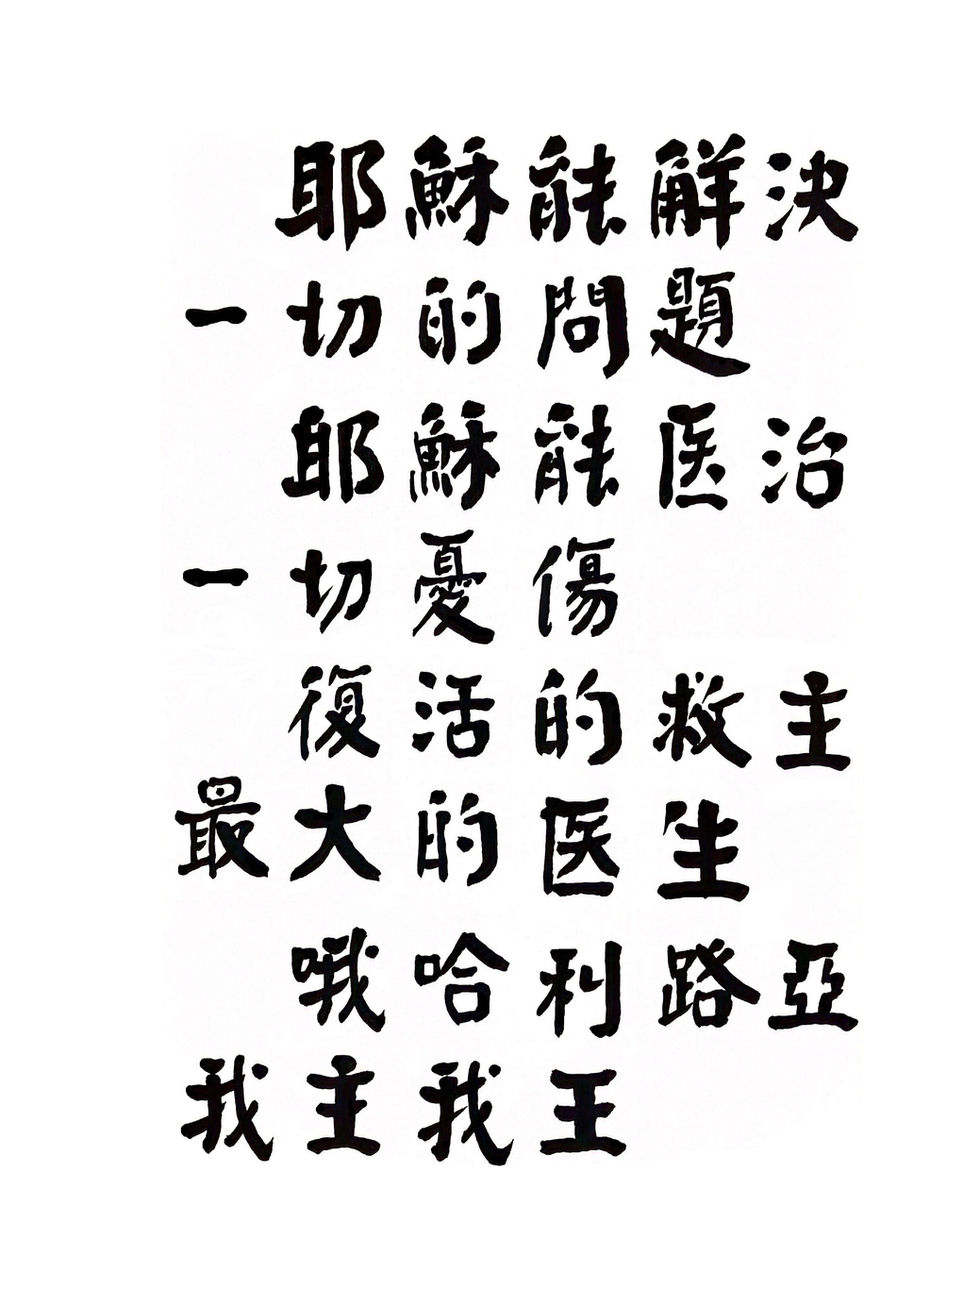 耶穌能解決
一切的問題
耶穌能医治
一切憂傷
復活的救主
最大的医生
哦哈利路亞
我主我王